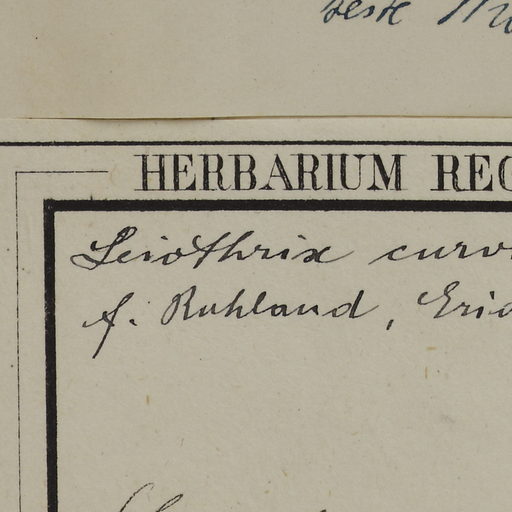 teste
HERBARIUM REG
Leiothrix curv
f. Ruhland, Erio